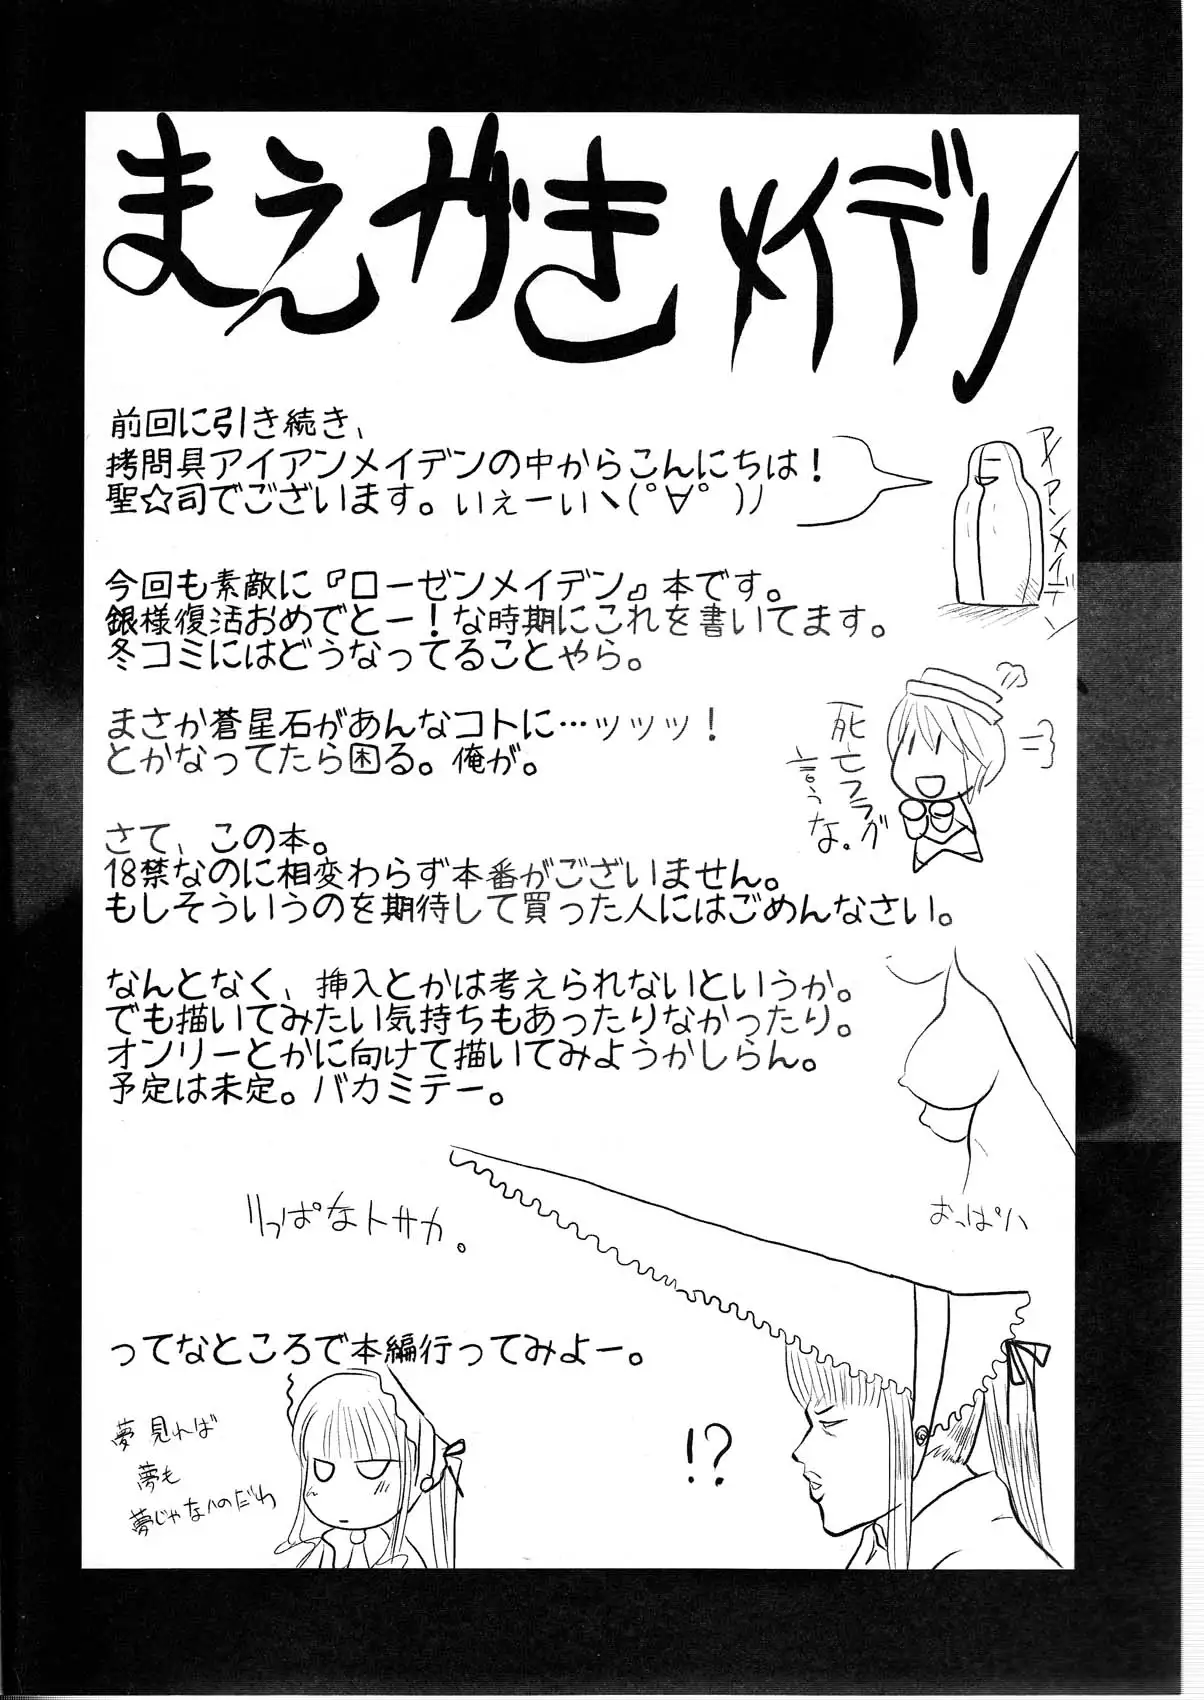 まえがきメイデン
前回に引き続き、
拷問具アイアンメイデンの中からこんにちは！
聖☆司でございます。いぇーいヽ(ﾟ∀ﾟ)ノ
アイアンメイデン
今回も素敵に『ローゼンメイデン』本です。
銀様復活おめでとー！な時期にこれを書いてます。
冬コミにはどうなってることやら。
まさか蒼星石があんなコトに…ッッッ！
とかなってたら困る。俺が。
死亡フラグ
言うな。
さて、この本。
18禁なのに相変わらず本番がございません。
もしそういうのを期待して買った人にはごめんなさい。
なんとなく、挿入とかは考えられないというか。
でも描いてみたい気持ちもあったりなかったり。
オンリーとかに向けて描いてみようかしらん。
予定は未定。バカミテー。
おっぱい
りっぱなトサカ。
ってなところで本編行ってみよー。
夢見れば
夢も
夢じゃないのだわ
!?